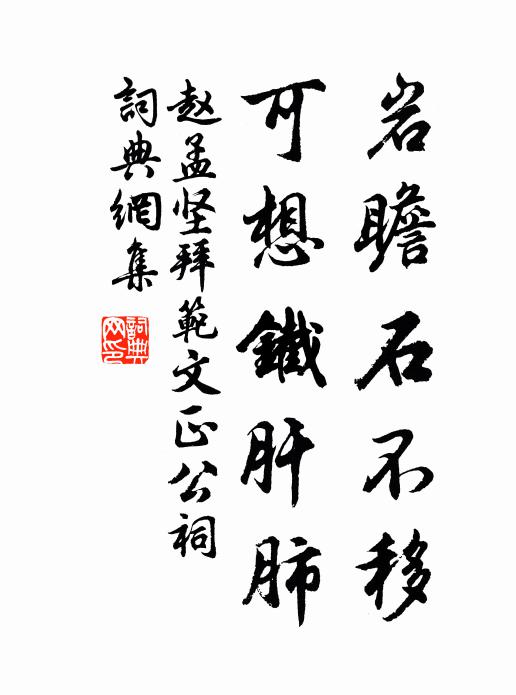 岩瞻石不移
可想鐵肝肺
赵孟坚拜範文正公祠
詞典網集
詞典网印